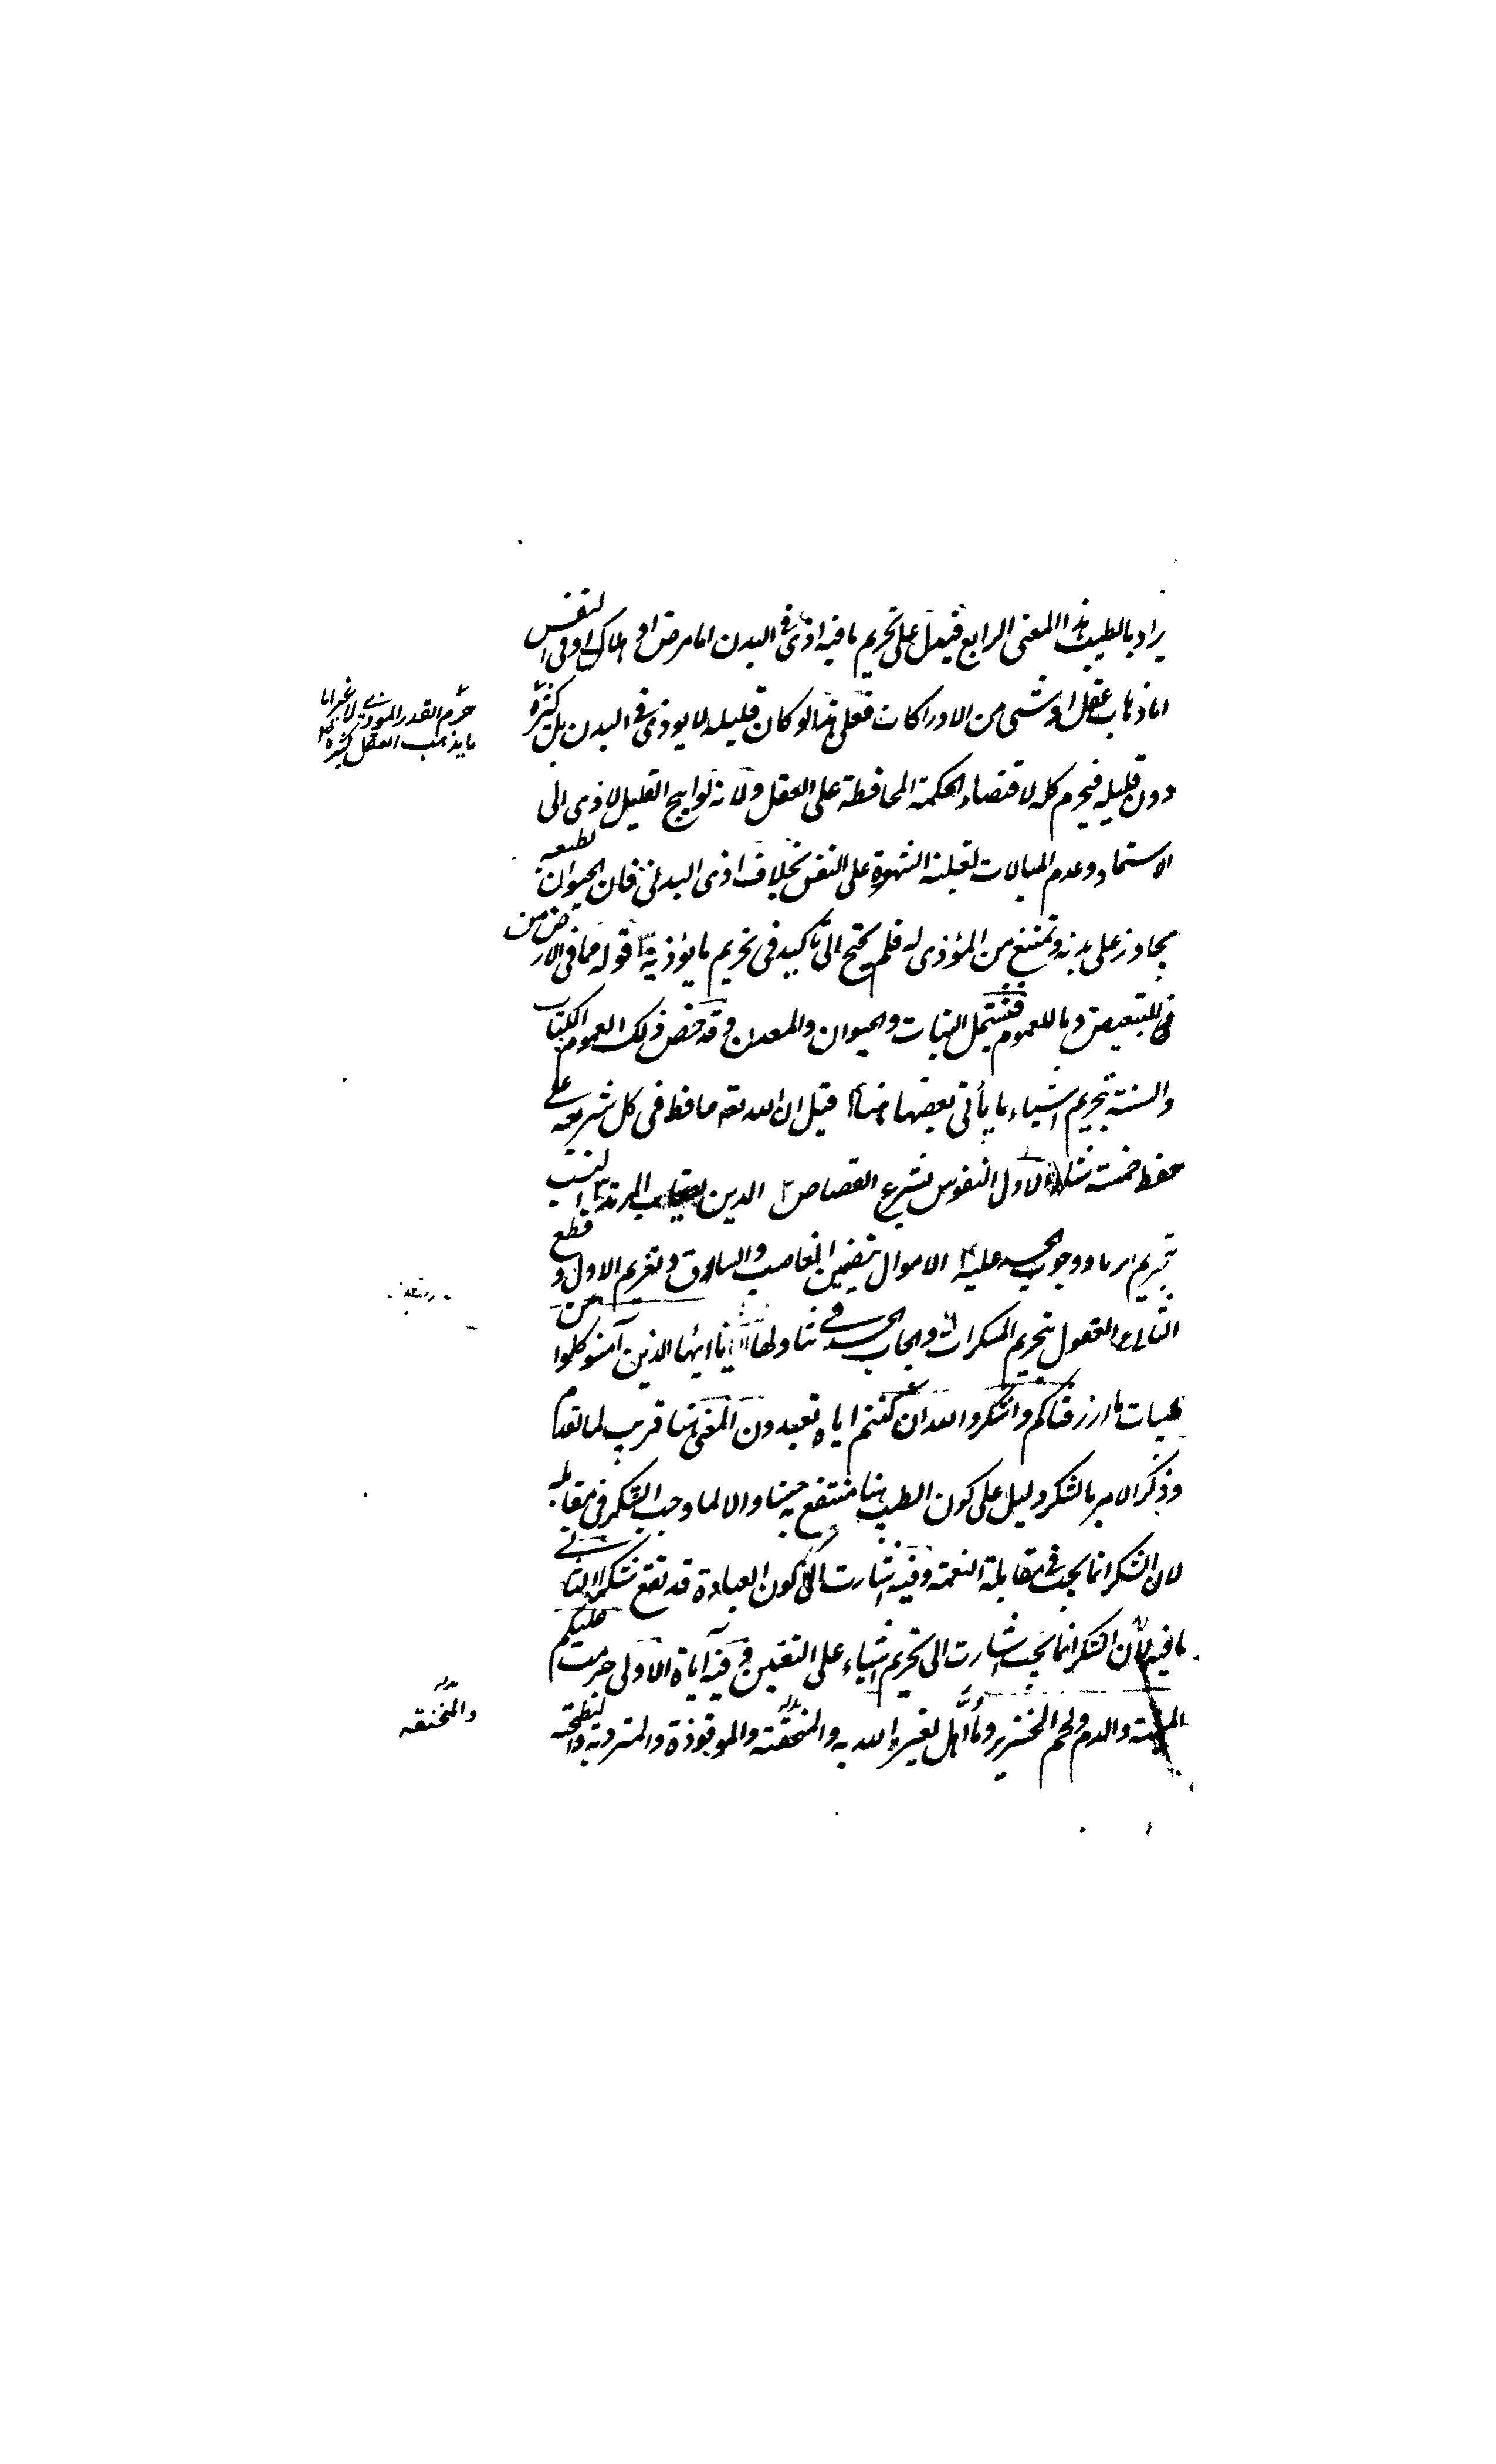 يراد بالطيب هنا المعنى الرابع فيدل على تحريم ما فيه اذى فى البدن اما مرض او هلاك او فى النفس
اما ذهاب عقل او شىء من الادراكات فعلى هذا لو كان قليله لا يوذى فى البدن بل كثيره
حرم القدر الموذى لا غير اما
ما يذهب العقل كثيره
دون قليله فيحرم كله لاقتضاء الحكمة المحافظة على العقل ولانه لو ابيح القليل لادى الى
الاستماد وعدم المبالات لغلبة الشهوة على النفس بخلاف اذى البدن فان الحيوان بطبعه
يحاذر على بدنه وتمتنع من المؤذى له فلم يحتج الى تاكيد فى تحريم ما يؤذيه قوله مما فى الارض من
فى للتبعيض وما للعموم فيشمل النبات والحيوان والمعدن وقد خص ذلك العموم الكتاب
والسنة بتحريم اشياء ما يأتى بعضها هنا قيل ان الله تعه حافظ فى كل شريعه على
حفظ خمسة اشياء الاول النفوس بشرع القصاص الدين بعقاب المرتد النسب
بتحريم الزنا ووجوب الحد عليه الاموال بتضمين الغاصب والسارق وتغريم الاول و قطع
الثانى العقول بتحريم المسكرات وايجاب الحد فى تناولها يا ايها الذين آمنو كلوا من
طيبات ما رزقناكم واشكروا الله ان كنتم اياه تعبدون المعنى هنا قريب لما تقدم
وذكر الامر بالشكر دليل على كون الطيب هنا منتفع به حينا والا لما وجب الشكر فى مقابله
لان الشكر انما يجب فى مقابلة النعمة وفيه اشارت الى كون العبادة قد تقع شكرا الثانى
ما فيه لان الشكر انما يجب اشارت الى تحريم اشياء على التعيين وفيه آياة الاولى حرمت عليكم
الميتة والدم ولحم الخنزير وما اهل لغير الله به والمنخنقة والموقوذة والمتردية والنطيحة
والمنخنقه